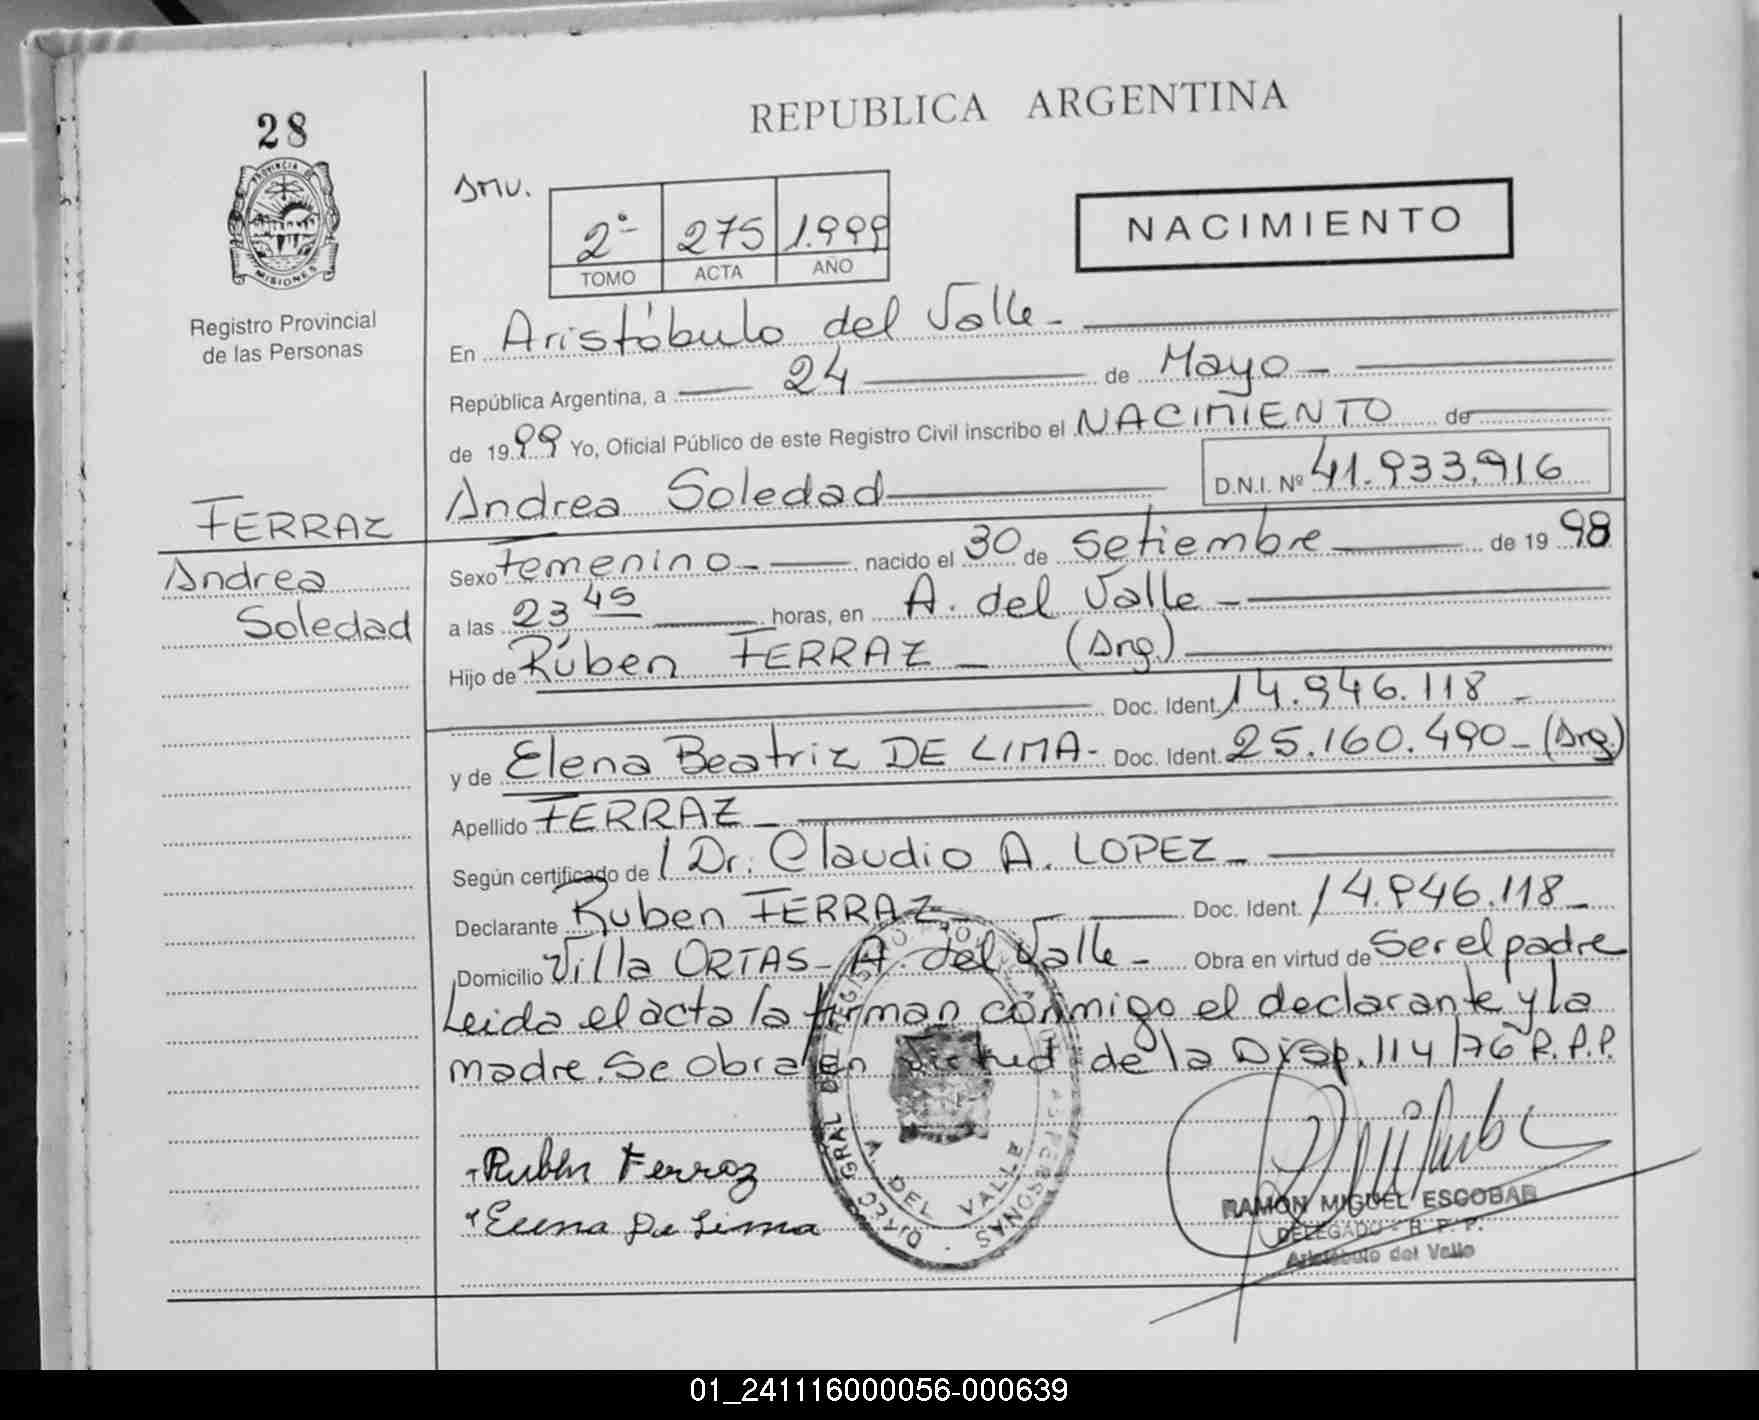 28
PROVINCIA DE
MISIONES
Registro Provincial
de las Personas
REPUBLICA ARGENTINA
2º 275 1.999
TOMO ACTA AÑO
NACIMIENTO
En Aristóbulo del Valle -
República Argentina, a 24 de Mayo -
de 1999 Yo, Oficial Público de este Registro Civil inscribo el NACIMIENTO de
Andrea Soledad D.N.I. Nº 41.933.916
FERRAZ
Andrea
Soledad
Sexo Femenino - nacido el 30 de Setiembre de 1998
a las 23 45 horas, en A. del Valle -
Hijo de Rúben FERRAZ - (Arg.)
Doc. Ident. 14.946.118 -
y de Elena Beatriz DE LIMA - Doc. Ident. 25.160.490 - (Arg.)
Apellido FERRAZ -
Según certificado de / Dr. Claudio A. LOPEZ -
Declarante Ruben FERRAZ - Doc. Ident. 14.946.118 -
Domicilio Villa ORTAS - A. del Valle - Obra en virtud de Ser el padre
Leida el acta la firman conmigo el declarante y la
madre. Se obra en virtud de la Disp. 114/76 R.P.P.
Rubén Ferraz
Elena De Lima
A. DEL VALLE
RAMON MIGUEL ESCOBAR
DELEGADO - R. P. P.
Aristóbulo del Valle
01_241116000056-000639